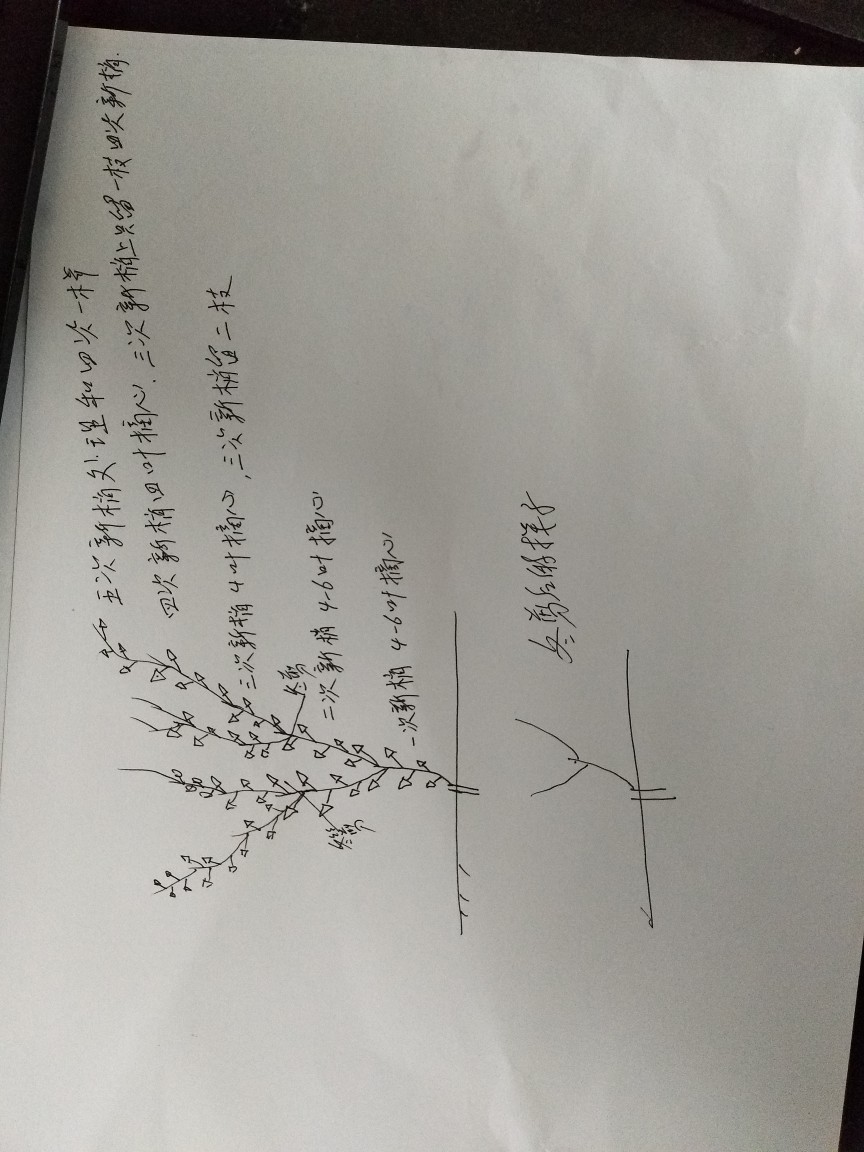 五次新梢处理和四次一样
四次新梢四叶摘心.三次新梢上只留一枝四次新梢.
三次新梢4叶摘心,三次新梢留二枝
冬剪
二次新梢4-6叶摘心
一次新梢4-6叶摘心
冬剪
冬剪后的样子